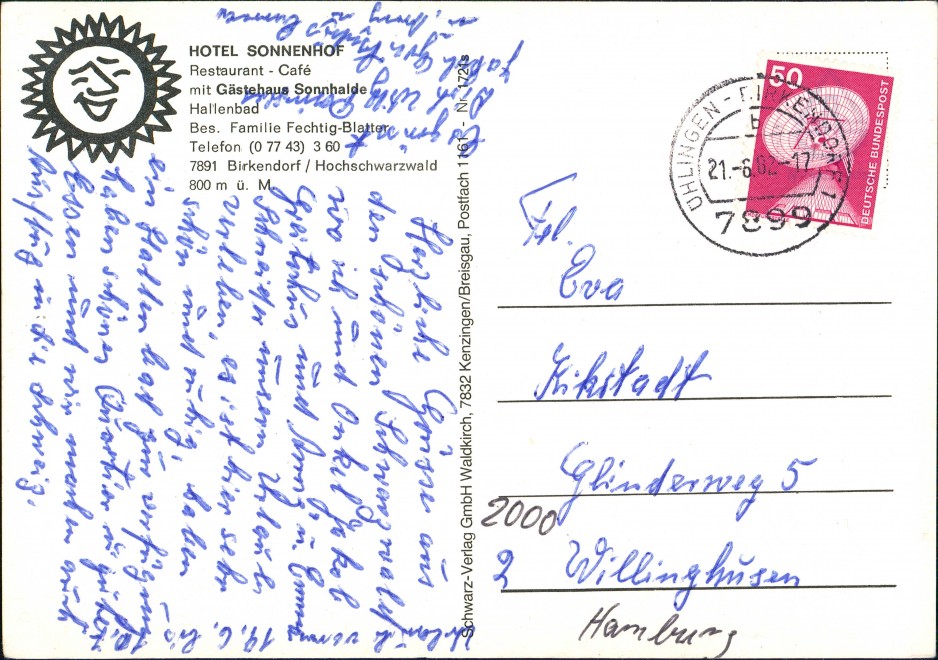 HOTEL SONNENHOF
Restaurant - Café
mit Gästehaus Sonnhalde
Hallenbad
Bes. Familie Fechtig-Blatter
Telefon (0 77 43) 3 60
7891 Birkendorf / Hochschwarzwald
800 m ü. M.
Herzliche Grüsse aus
dem schönen Schwarzwald
wo ich und Onkel Jakob
und Anny u. Emma
Schmid unsern Urlaub
verleben, es ist hier sehr
schön und ruhig, haben
ein Hallenbad zur verfügung
haben schönes Quartier u. gutes
Essen und wir machen auch
Ausflüg in die Schweiz,
Urlaub vom 14.6. bis
Schwarz-Verlag GmbH Waldkirch, 7832 Kenzingen/Breisgau, Postfach 1161 - Nr. 1721s
50
DEUTSCHE BUNDESPOST
ÜHLINGEN-BIRKENDORF 1
b
21.-6.82-17
7899
Frl.
Eva
Kikstadt
Glinderweg 5
2000
2 Willinghusen
Hamburg